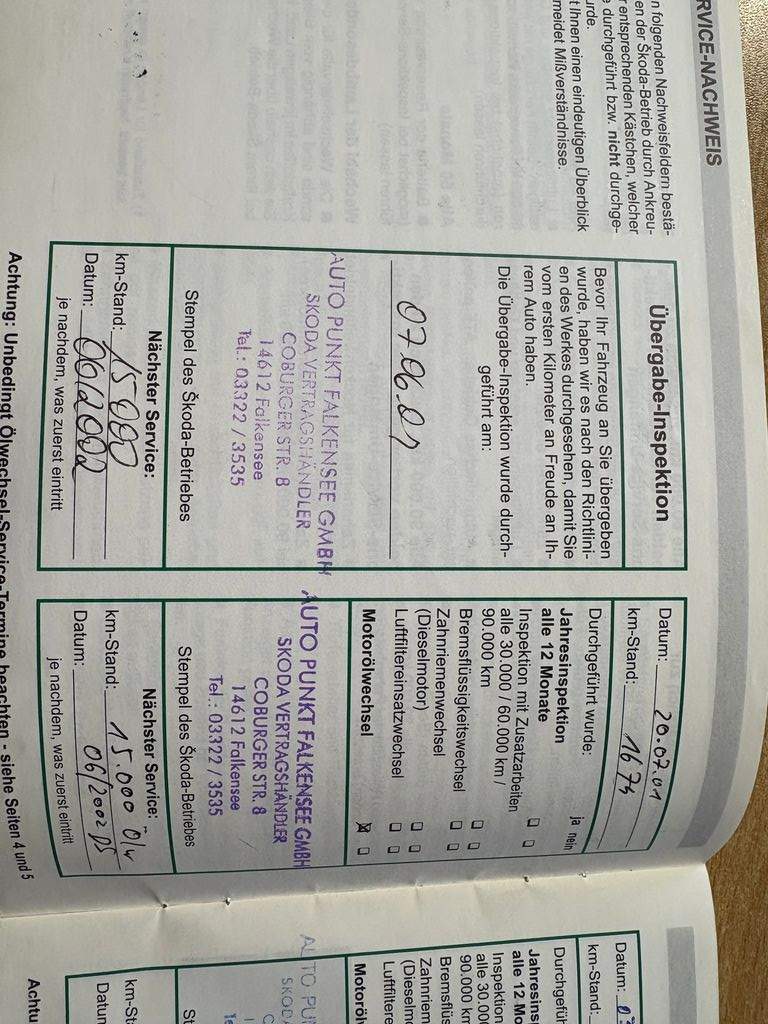 RVICE-NACHWEIS
n folgenden Nachweisfeldern bestä-
en der Škoda-Betrieb durch Ankreu-
entsprechenden Kästchen, welcher
durchgeführt bzw. nicht durchge-
urde.
t Ihnen einen eindeutigen Überblick
meidet Mißverständnisse.
Übergabe-Inspektion
Bevor Ihr Fahrzeug an Sie übergeben
wurde, haben wir es nach den Richtlini-
en des Werkes durchgesehen, damit Sie
vom ersten Kilometer an Freude an Ih-
rem Auto haben.
Die Übergabe-Inspektion wurde durch-
geführt am:
07.06.01
AUTO PUNKT FALKENSEE GMBH
SKODA VERTRAGSHÄNDLER
COBURGER STR. 8
14612 Falkensee
Tel.: 03322 / 3535
Stempel des Škoda-Betriebes
Nächster Service:
km-Stand: 15000
Datum: 06/2002
je nachdem, was zuerst eintritt
Datum: 20.07.01
km-Stand: 1673
Durchgeführt wurde:
ja nein
Jahresinspektion
alle 12 Monate
Inspektion mit Zusatzarbeiten
alle 30.000 / 60.000 km /
90.000 km
Bremsflüssigkeitswechsel
Zahnriemenwechsel
(Dieselmotor)
Luftfiltereinsatzwechsel
Motorölwechsel
AUTO PUNKT FALKENSEE GMBH
SKODA VERTRAGSHÄNDLER
COBURGER STR. 8
14612 Falkensee
Tel.: 03322 / 3535
Stempel des Škoda-Betriebes
Nächster Service:
km-Stand: 15.000 Ö/w
Datum: 06/2002 DS
je nachdem, was zuerst eintritt
Achtung: Unbedingt Ölwechsel-Service-Termine beachten - siehe Seiten 4 und 5
Datum:
km-Stand:
Durchgefüh
Jahresins
alle 12 Mo
Inspektion
alle 30.00
90.000 km
Bremsflüs
Zahnriem
(Dieselmo
Luftfiltere
Motoröl
AUTO PU
SKODA
St
km-St
Datun
Achtu